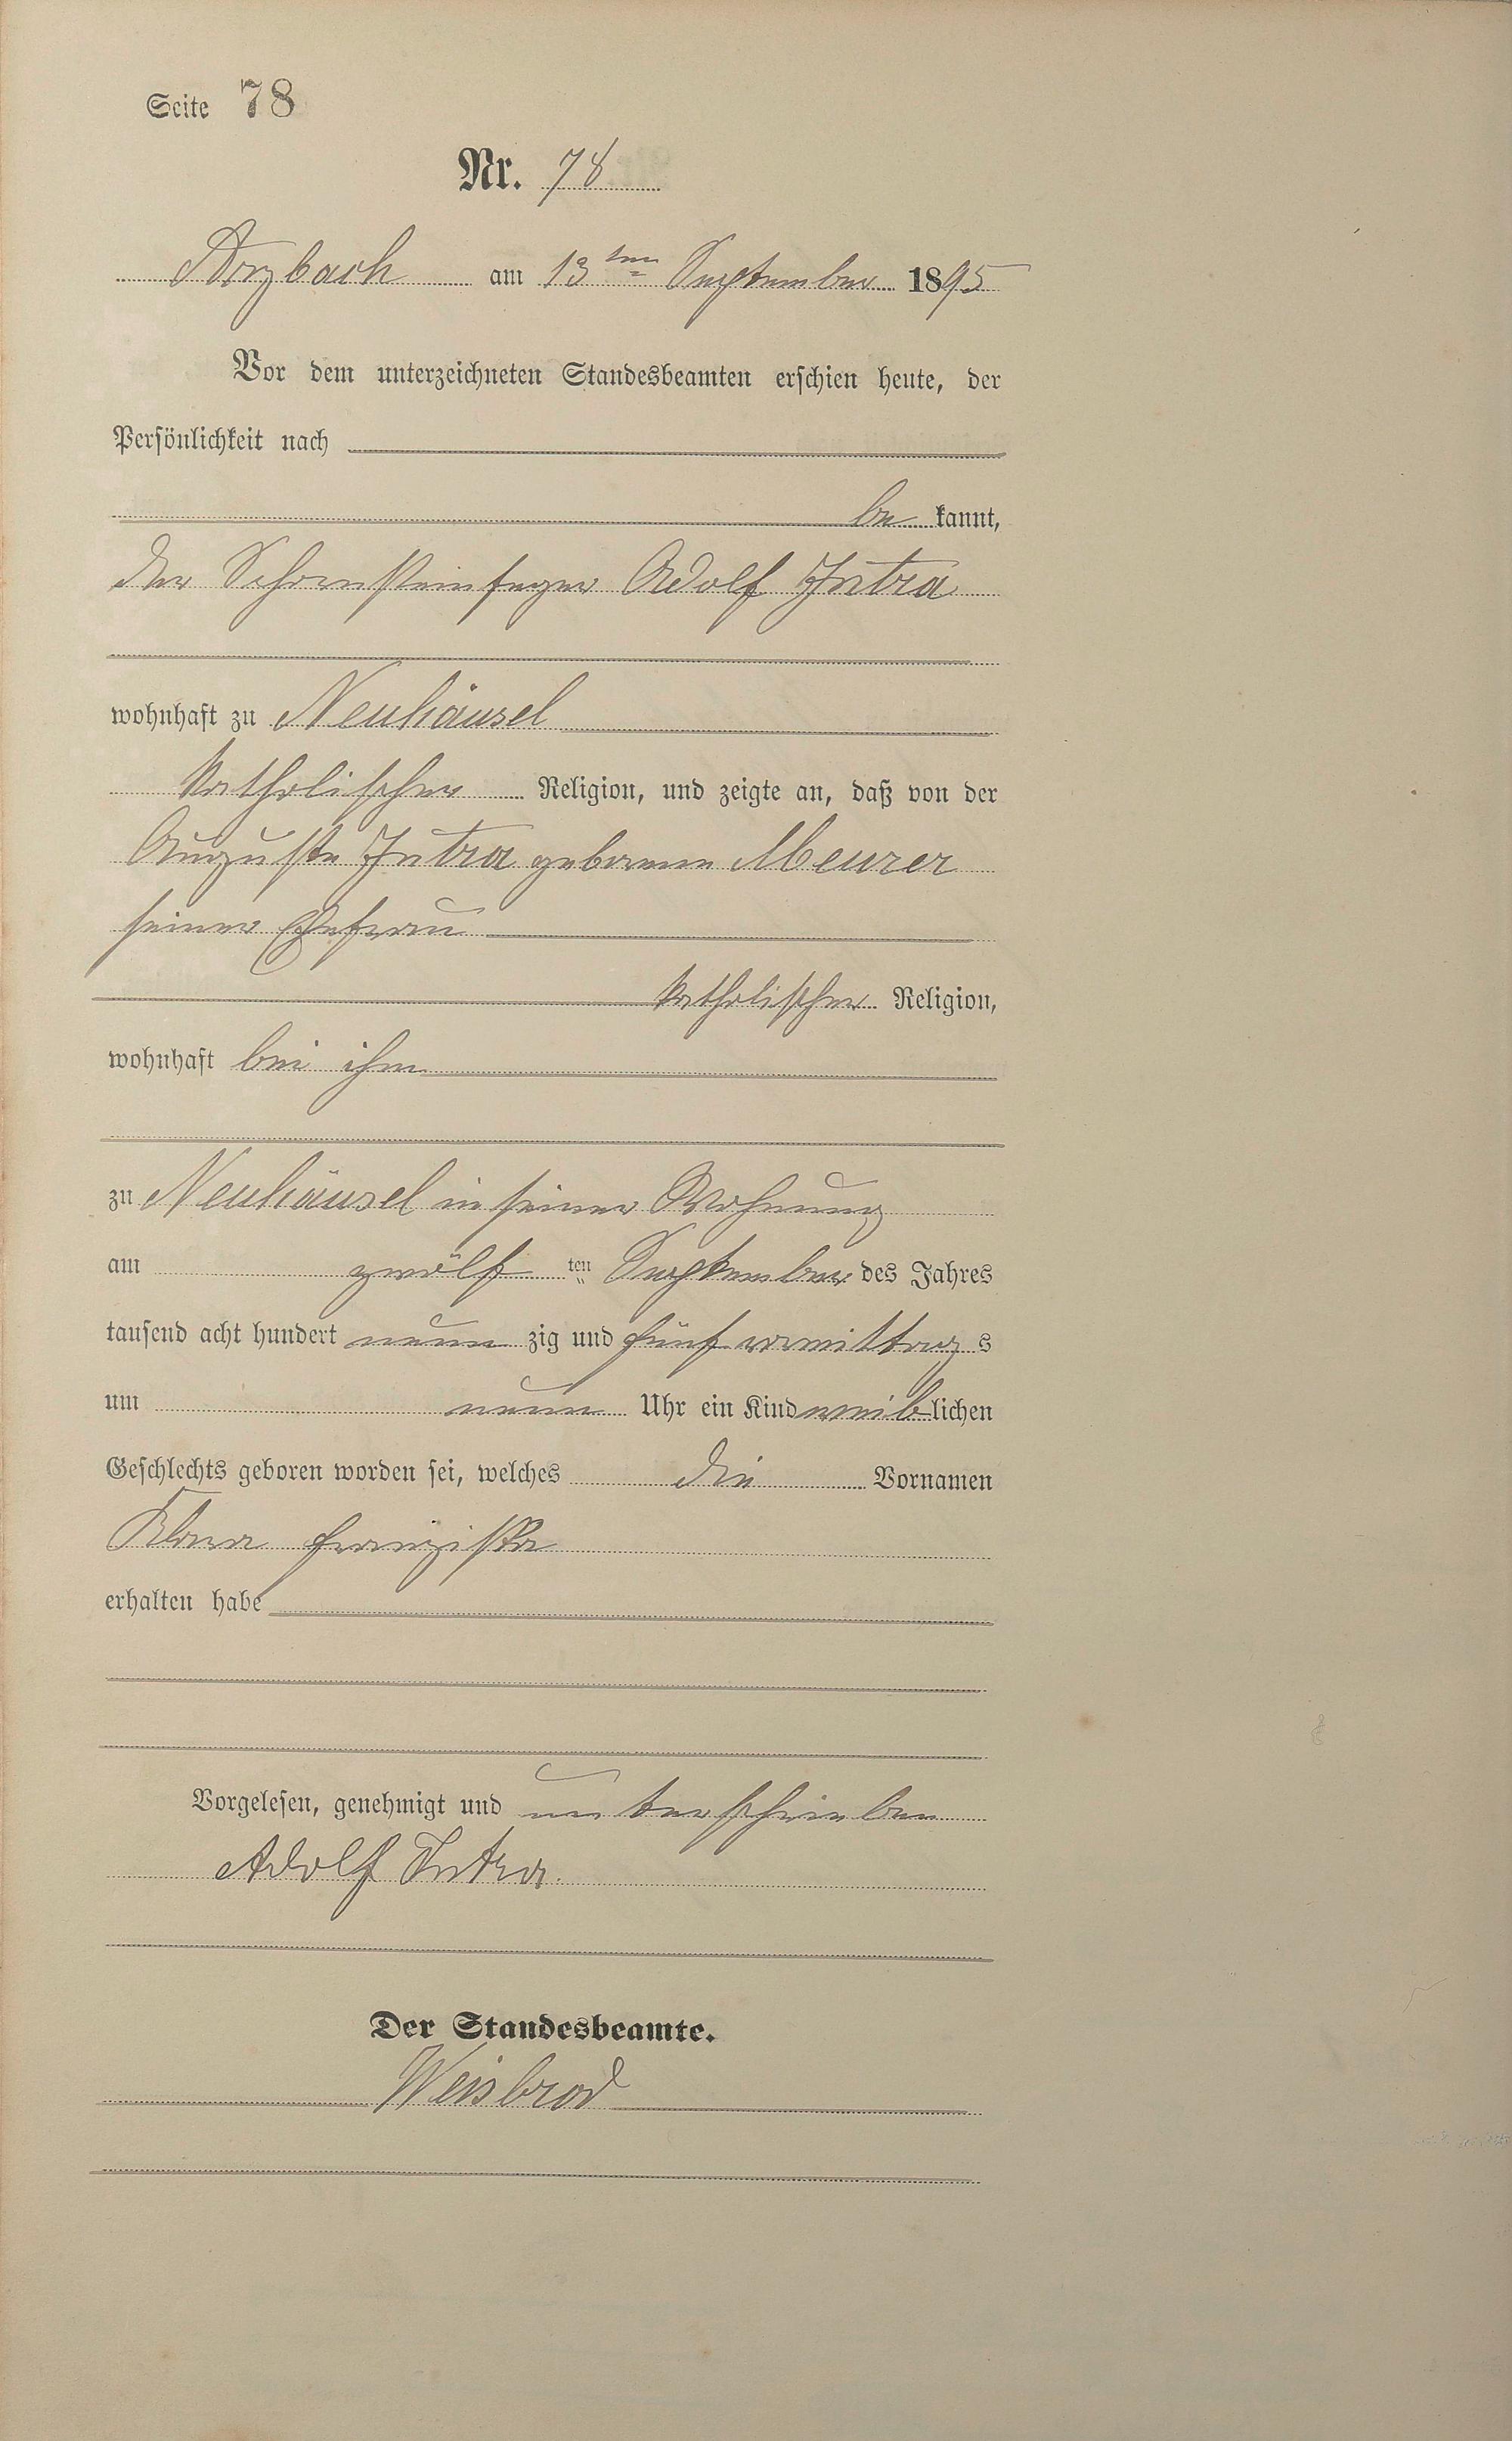 Seite 78
Nr. 78
Arzbach am 13ten September 1895
Vor dem unterzeichneten Standesbeamten erschien heute, der
Persönlichkeit nach
be kannt,
der Schornsteinfeger Adolf Intra
wohnhaft zu Neuhäusel
katholischer Religion, und zeigte an, daß von der
Auguste Intra geborene Meurer
seiner Ehefrau
katholischer Religion,
wohnhaft bei ihm
zu Neuhäusel in seiner Wohnung
am zwölf ten September des Jahres
tausend acht hundert neun zig und fünf vormittag s
um neun Uhr ein Kind weiblichen
Geschlechts geboren worden sei, welches die Vornamen
Klara Franziska
erhalten habe
Vorgelesen, genehmigt und unterschrieben
Adolf Intra.
Der Standesbeamte.
Weisbrod